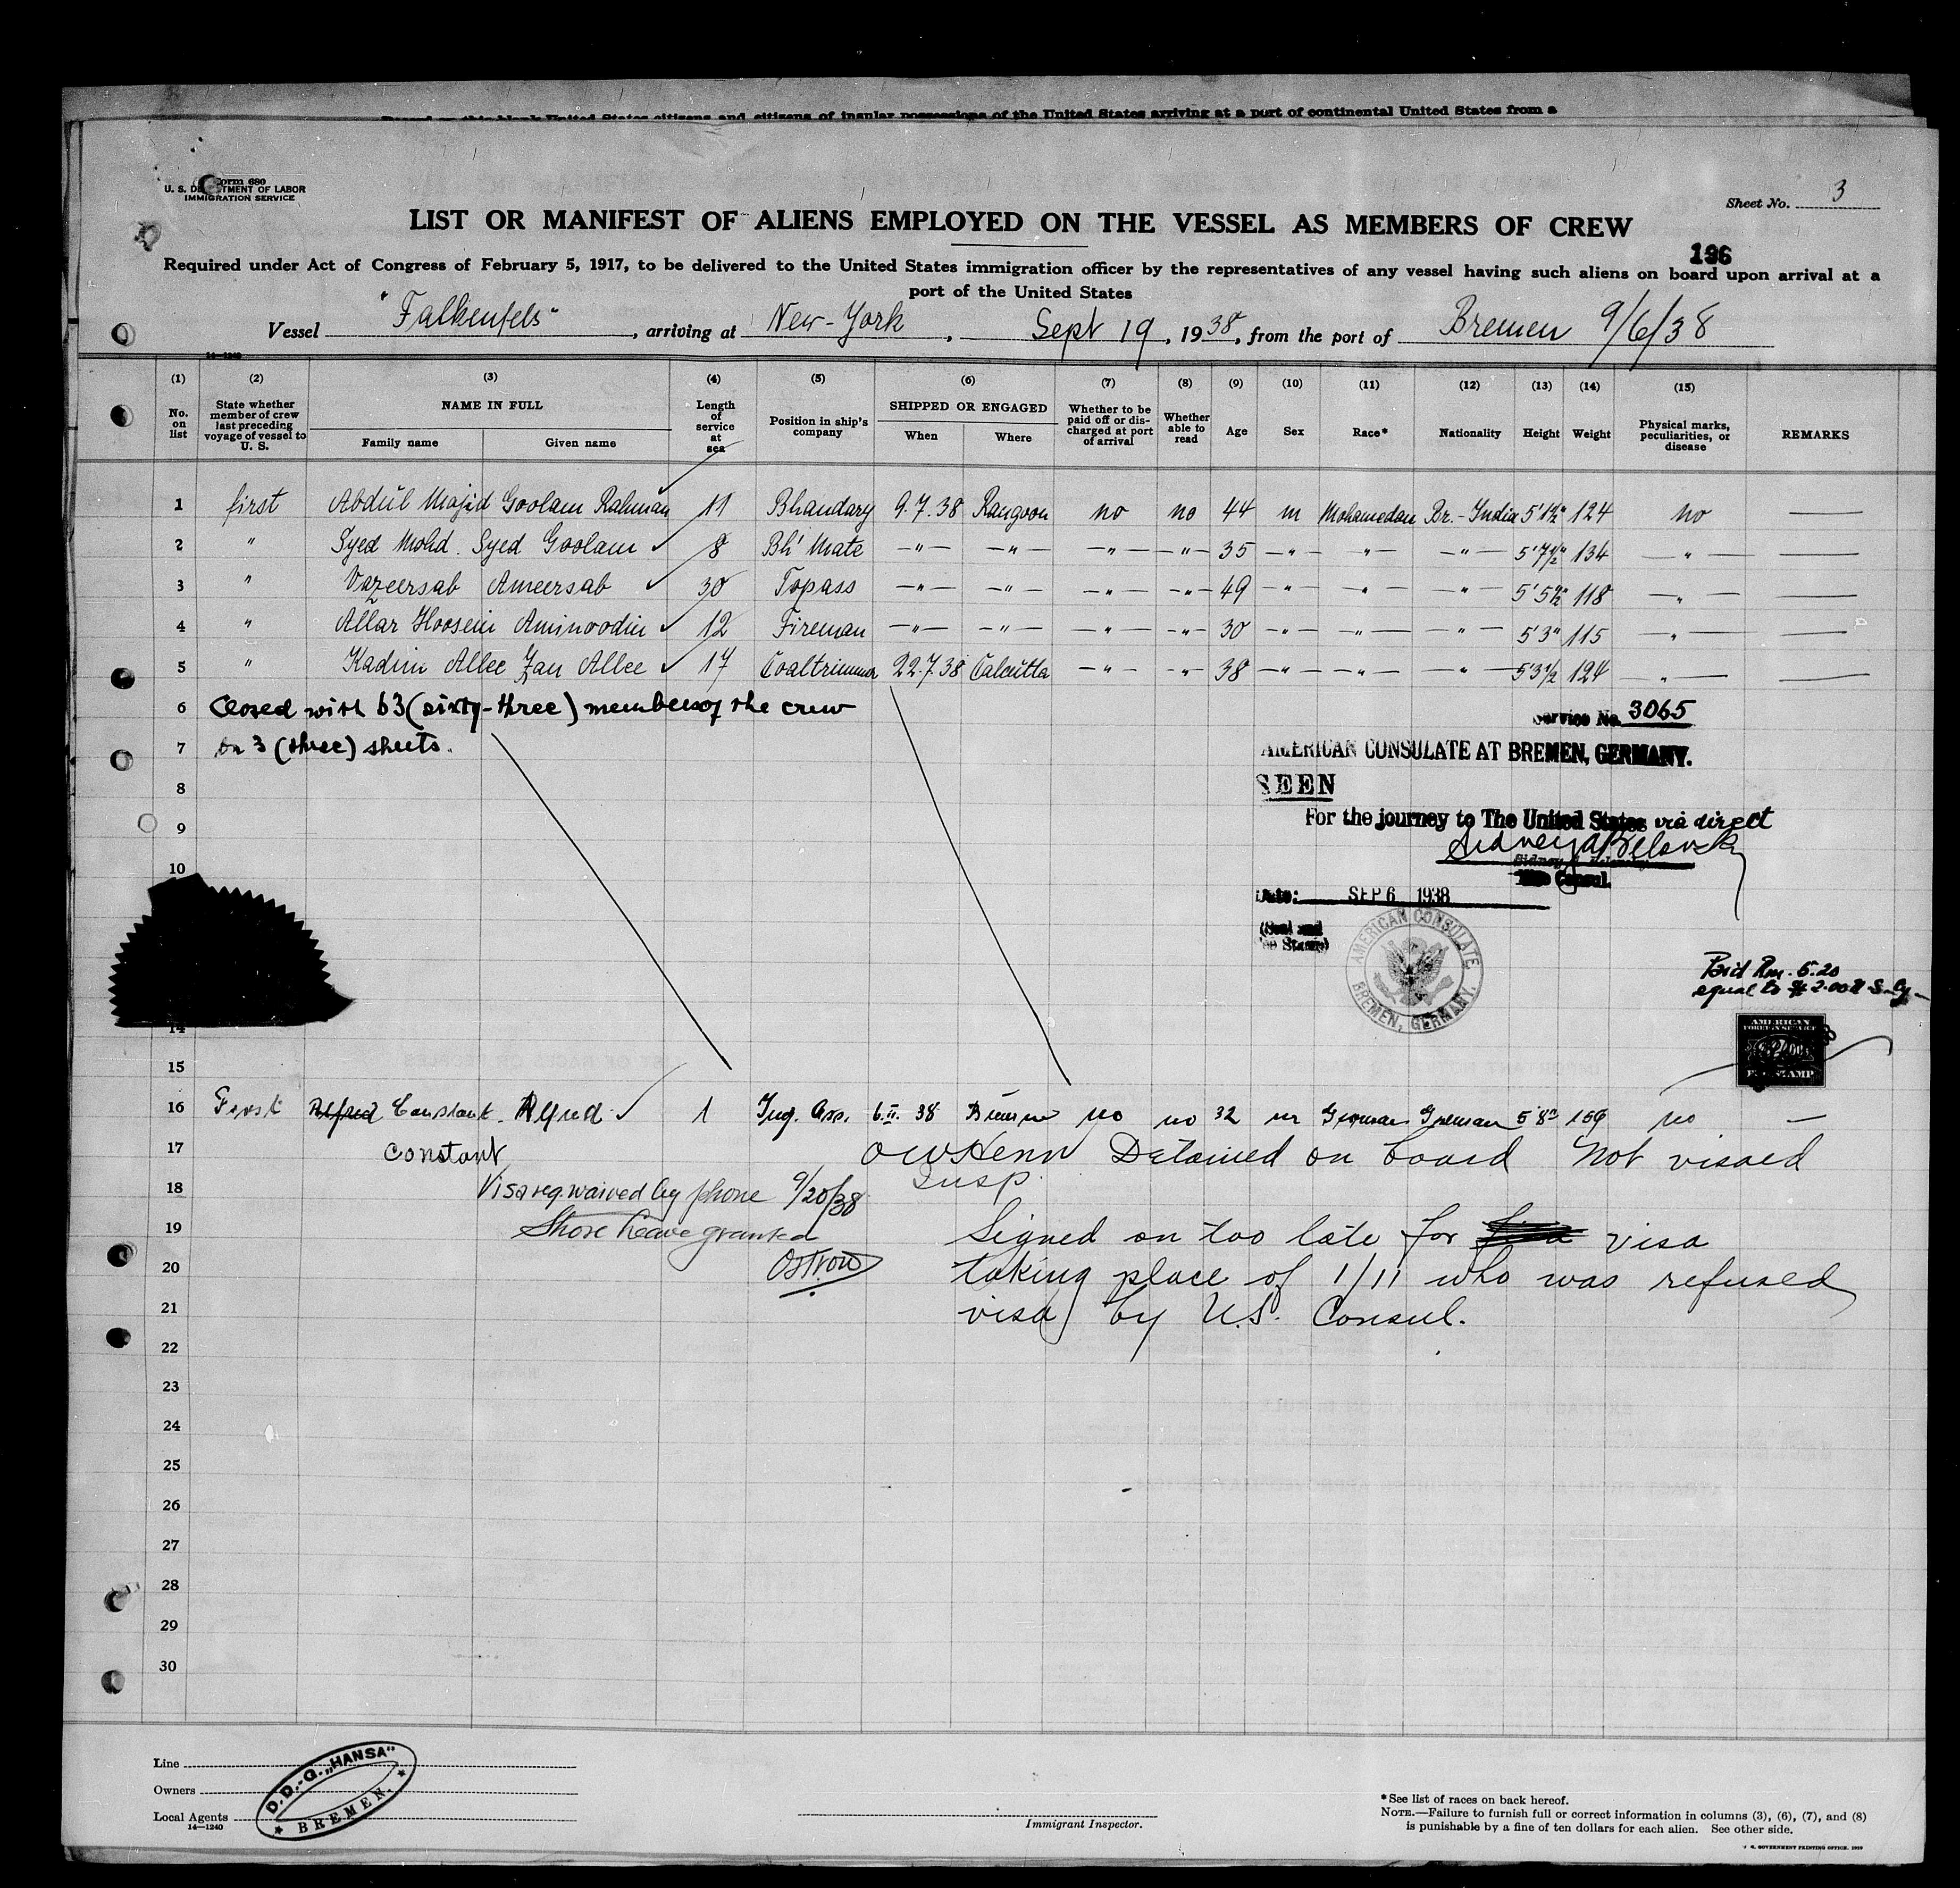 Form 680
U. S. DEPARTMENT OF LABOR
IMMIGRATION SERVICE
Sheet No. 3
LIST OR MANIFEST OF ALIENS EMPLOYED ON THE VESSEL AS MEMBERS OF CREW
196
Required under Act of Congress of February 5, 1917, to be delivered to the United States immigration officer by the representatives of any vessel having such aliens on board upon arrival at a
port of the United States
Vessel "Falkenfels", arriving at New-York, Sept 19, 1938, from the port of Bremen 9/6/38
14—1240
(1) (2) (3) (4) (5) (6) (7) (8) (9) (10) (11) (12) (13) (14) (15)
No. on list
State whether member of crew last preceding voyage of vessel to U. S.
NAME IN FULL
Family name
Given name
Length of service at sea
Position in ship's company
SHIPPED OR ENGAGED
When
Where
Whether to be paid off or discharged at port of arrival
Whether able to read
Age
Sex
Race*
Nationality
Height
Weight
Physical marks, peculiarities, or disease
REMARKS
1 first Abdul Majid Goolam Rahman 11 Bhandary 9.7.38 Rangoon no no 44 m Mohamedan Br.-India 5'1½" 124 no —
2 " Syed Mohd. Syed Goolam ✓ 8 Bh' Mate —"— —"— —"— —"— 35 —"— —"— —"— 5'7½" 134 —"— —
3 " Vazeersab Ameersab ✓ 30 Topass —"— —"— —"— —"— 49 —"— —"— —"— 5'5½" 118 —"— —
4 " Allar Hoosein Aminoodin ✓ 12 Fireman —"— —"— —"— —"— 30 —"— —"— —"— 5'3" 115 —"— —
5 " Kadim Allee Zan Allee ✓ 17 Coaltrimmer 22.7.38 Calcutta —"— —"— 38 —"— —"— —"— 5'3½ 124 —"— —
6 Closed with 63 (sixty-three) members of the crew
7 on 3 (three) sheets.
Service No. 3065
AMERICAN CONSULATE AT BREMEN, GERMANY.
SEEN
For the journey to The United States via direct
Sidney A Belovsky
Vice Consul.
Date: SEP 6 1938
(Seal and
Fee Stamp)
AMERICAN CONSULATE
BREMEN, GERMANY.
Paid Rm. 5.20
equal to $2.00 U.S. Cy.
AMERICAN
FOREIGN SERVICE
FEE STAMP
8
9
10
14
15
16 First Alfred Constant. Alfred ✓ 1 Ing. Ass. 6.II.38 Bremen no no 32 m German German 5'8" 159 no —
17 Constant
OWHenn Detained on board Not visaed
Insp.
18 Visa req. waived by phone 9/20/38
19 Shore leave granted
Ostrow
Signed on too late for visa
20 taking place of 1/11 who was refused
21 visa by U.S. Consul.
22
23
24
25
26
27
28
29
30
Line
Owners
Local Agents
14—1240
D. D.-G. „HANSA"
BREMEN.
Immigrant Inspector.
*See list of races on back hereof.
NOTE.—Failure to furnish full or correct information in columns (3), (6), (7), and (8)
is punishable by a fine of ten dollars for each alien. See other side.
U. S. GOVERNMENT PRINTING OFFICE